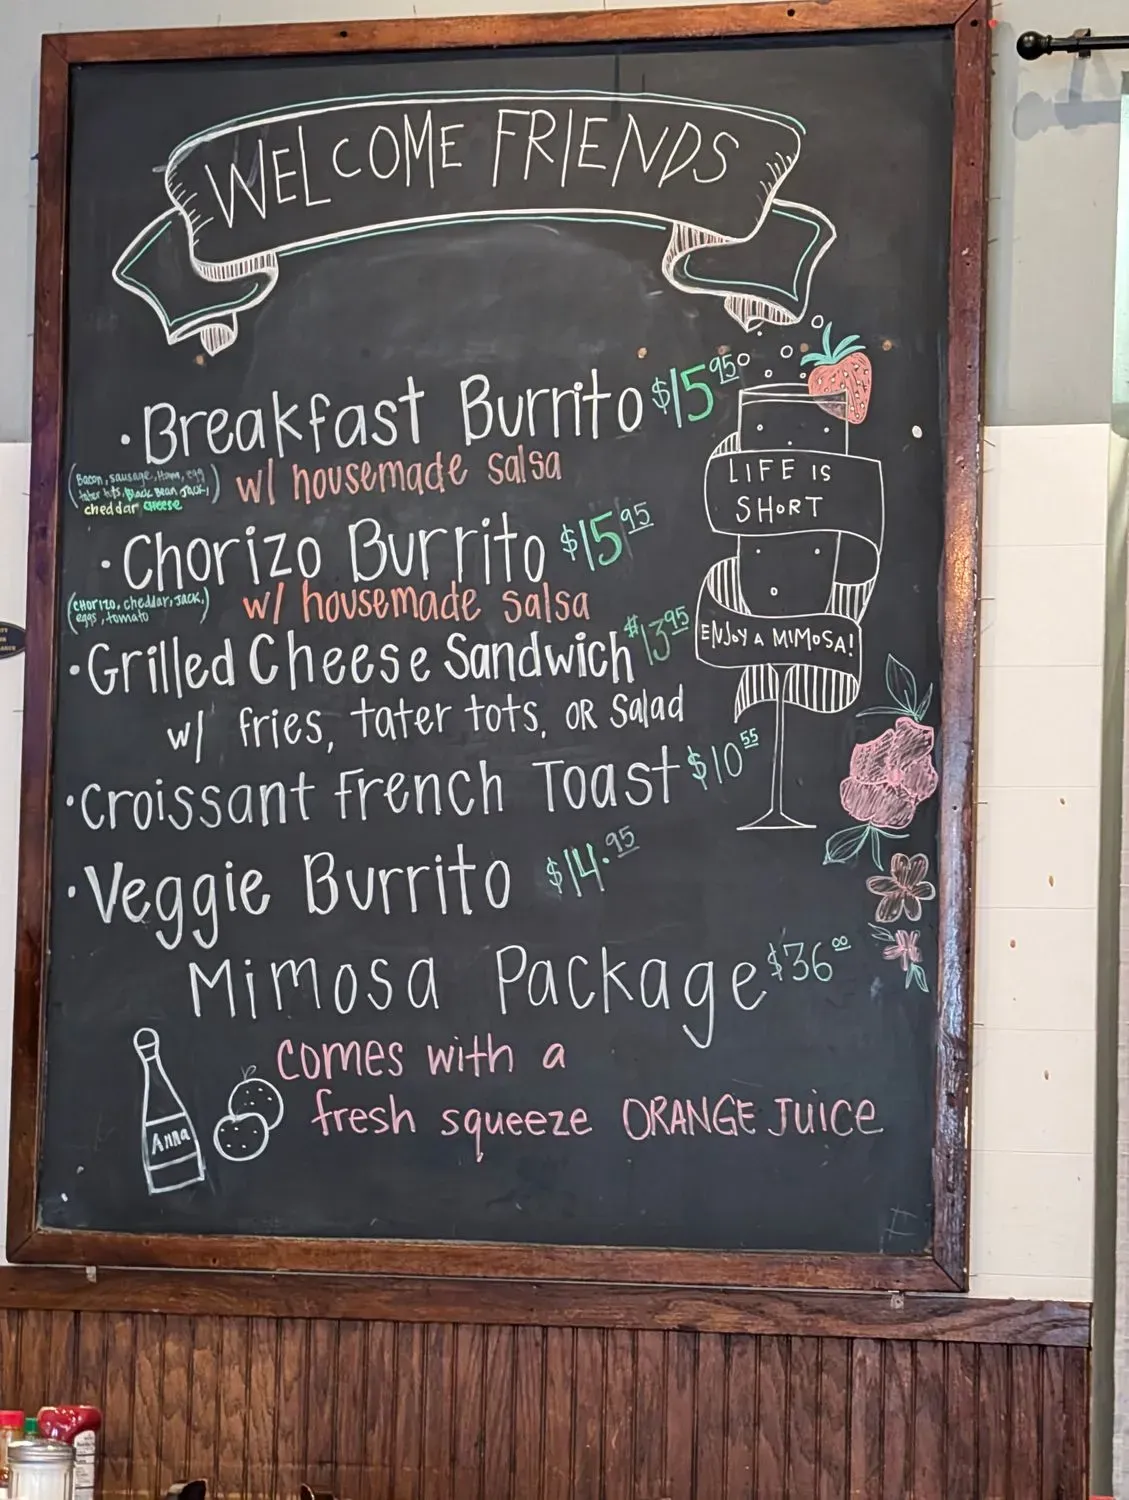 WELCOME FRIENDS
• Breakfast Burrito $15.95
(Bacon, sausage, Ham, egg
tater tots, Black Bean, Jack,
cheddar cheese)
w/ housemade salsa
• Chorizo Burrito $15.95
(Chorizo, cheddar, Jack,
eggs, tomato)
w/ housemade salsa
• Grilled Cheese Sandwich $13.95
w/ fries, tater tots, OR Salad
• Croissant French Toast $10.55
• Veggie Burrito $14.95
Mimosa Package $36.00
comes with a
fresh squeeze ORANGE JUICE
Anna
LIFE IS
SHORT
ENJOY A MIMOSA!